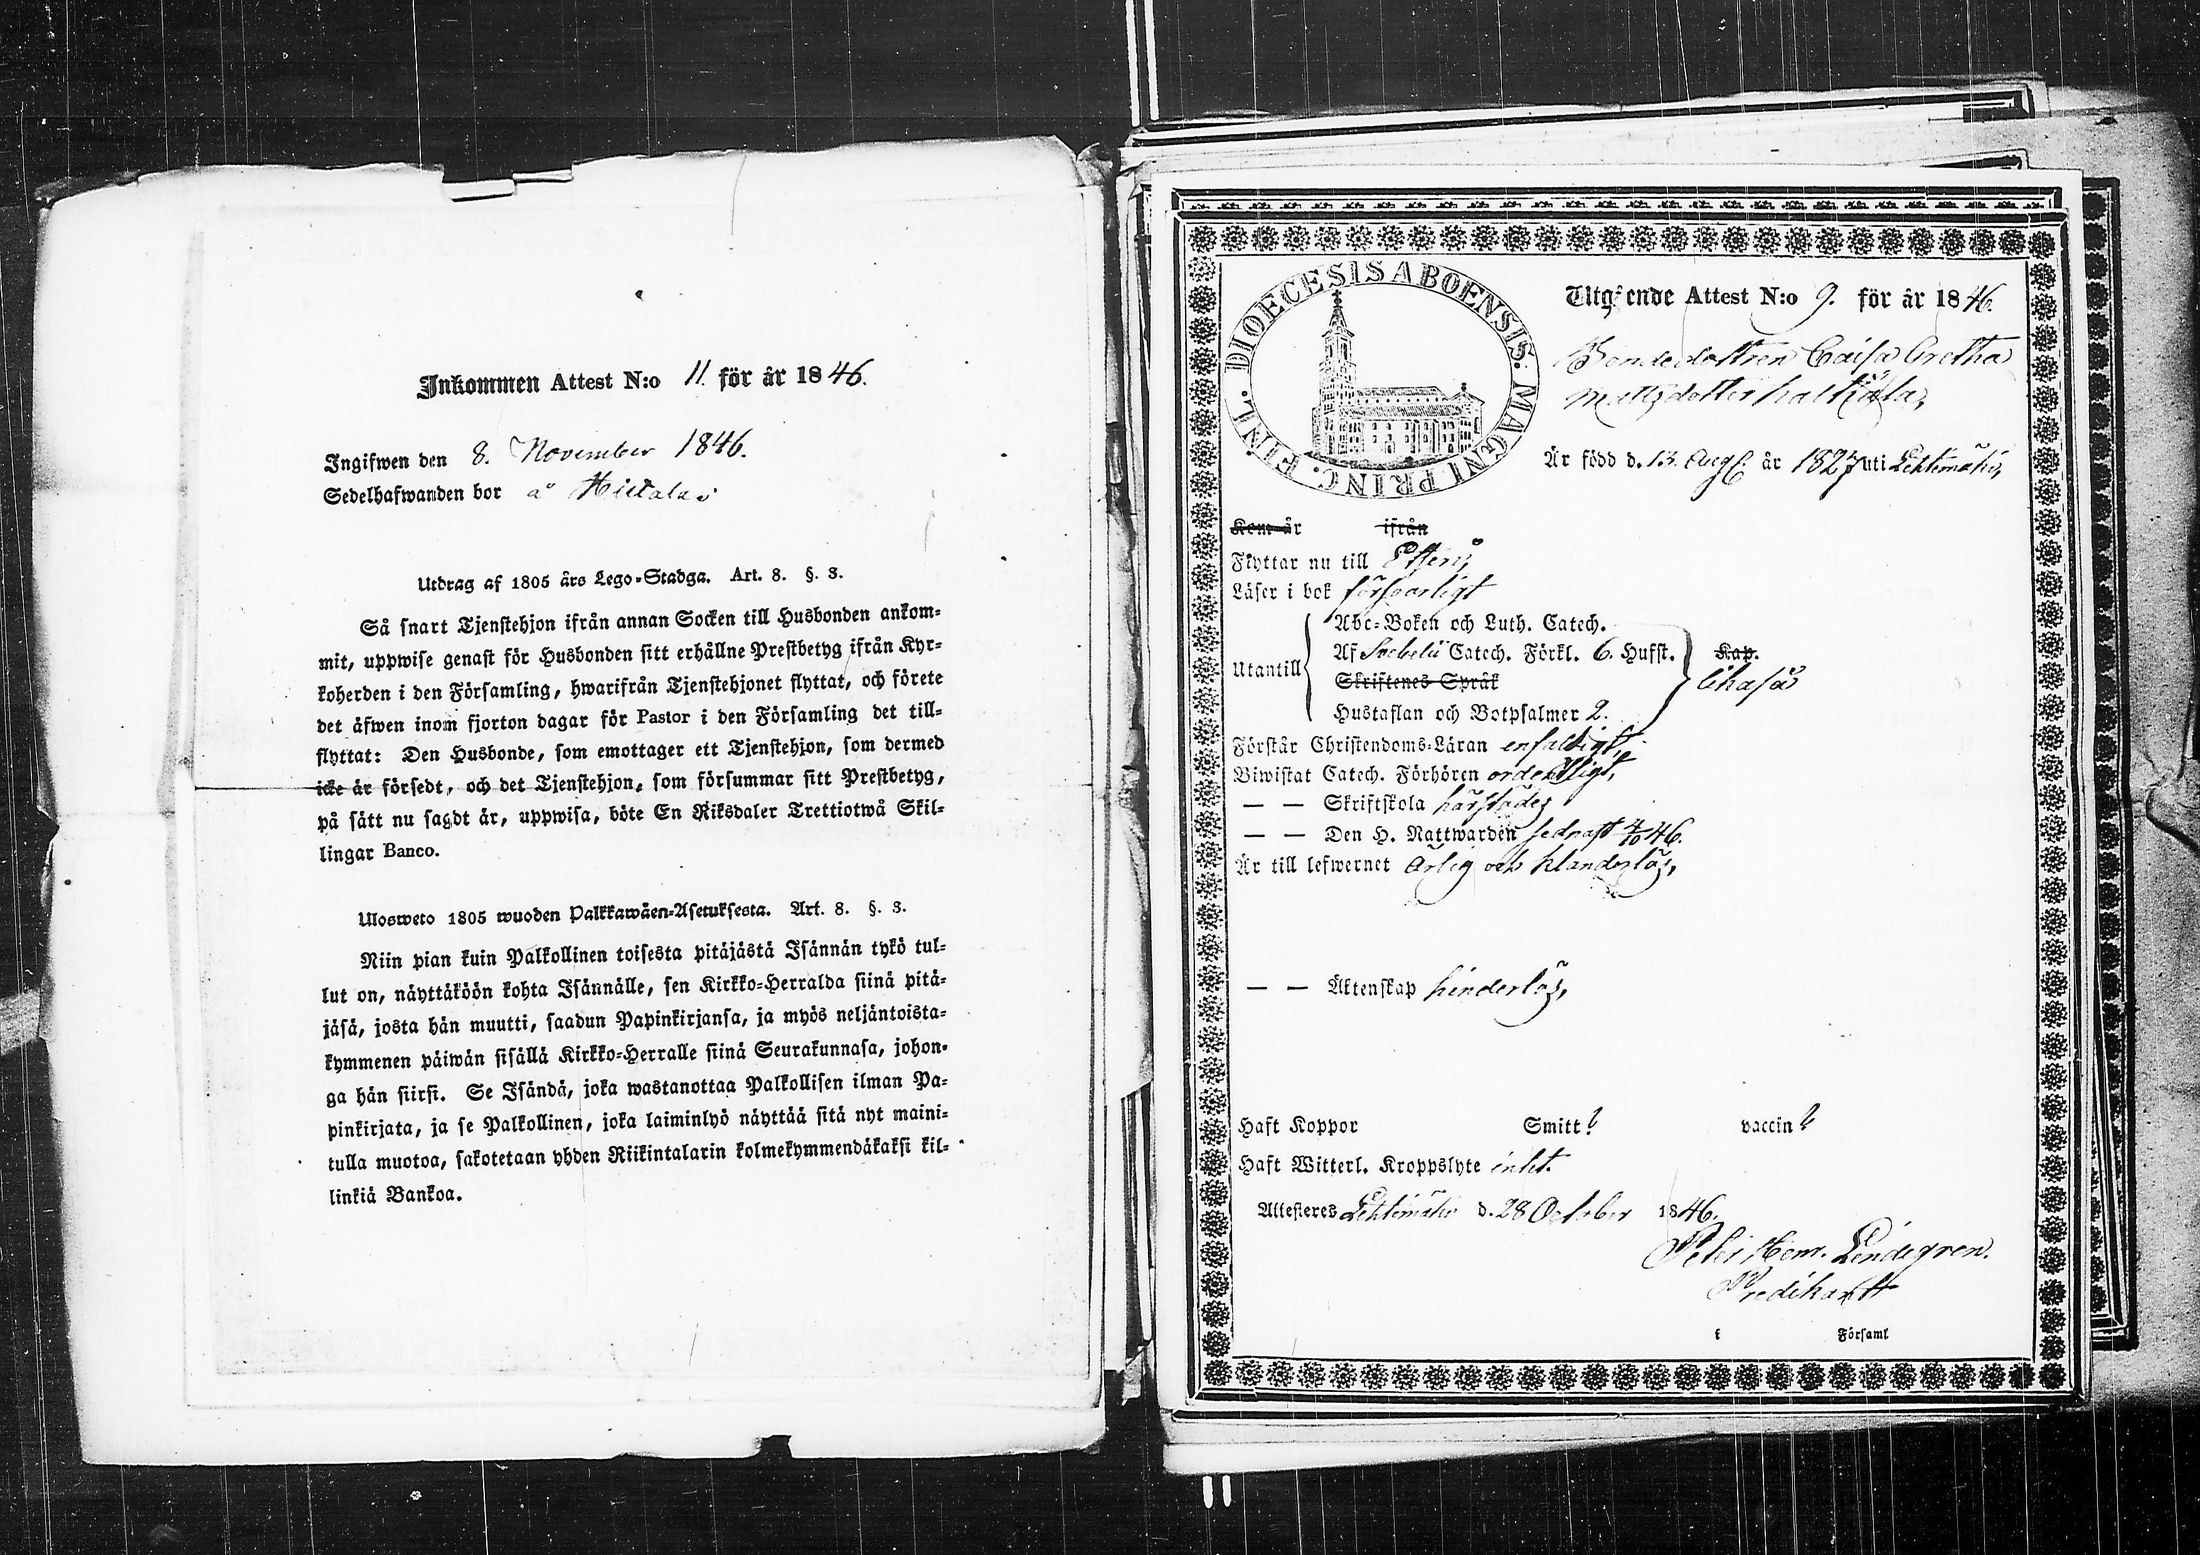 Inkommen Attest N:o 11. för år 1846.
Ingifwen den 8. November 1846.
Sedelhafwanden bor å Hietala
Utdrag af 1805 års Lego-Stadga. Art. 8. §. 3.
Så snart Tjenstehjon ifrån annan Socken till Husbonden ankom-
mit, uppwise genast för Husbonden sitt erhållne Prestbetyg ifrån Kyr-
koherden i den Församling, hwarifrån Tjenstehjonet flyttat, och förete
det äfwen inom fjorton dagar för Pastor i den Församling det till-
flyttat: Den Husbonde, som emottager ett Tjenstehjon, som dermed
icke är försedt, och det Tjenstehjon, som försummar sitt Prestbetyg,
på sätt nu sagdt är, uppwisa, böte En Riksdaler Trettiotwå Skil-
lingar Banco.
Ulosweto 1805 wuoden Palkkawäen-Asetuksesta. Art. 8. §. 3.
Niin pian kuin Palkollinen toisesta pitäjästä Isännän tykö tul-
lut on, näyttäköön kohta Isännälle, sen Kirkko-Herralda siinä pitä-
jäsä, josta hän muutti, saadun Papinkirjansa, ja myös neljäntoista-
kymmenen päiwän sisällä Kirkko-Herralle siinä Seurakunnasa, johon-
ga hän siirsi. Se Isändä, joka wastanottaa Palkollisen ilman Pa-
pinkirjata, ja se Palkollinen, joka laiminlyö näyttää sitä nyt maini-
tulla muotoa, sakotetaan yhden Riikintalarin kolmekymmendäkaksi kil-
linkiä Bankoa.
DIOECESIS ABOENSIS. MAGNI PRINC. FINL.
Utgående Attest N:o 9. för år 1846.
Bondedottren Caisa Gretha
Mattsdotter
Är född d. 13. Aug. år 1827 uti Lehtimäki,
Kom år ifrån
Flyttar nu till Etseri,
Läser i bok försvarligt
Abc-Boken och Luth. Catech.
Utantill Af Svebelii Catech. Förkl. 6. Hufst. Kap.
Skriftenes Språk
Hustaflan och Botpsalmer 2.
Förstår Christendoms-Läran enfaldigt,
Biwistat Catech. Förhören ordentligt,
— — Skriftskola härstädes
— — Den H. Nattwarden sednast 4/10 46.
Är till lefwernet ärlig och klanderlös,
— — Äktenskap hinderlös,
Haft Koppor Smitt vaccin
Haft Witterl. Kroppslyte intet.
Attesteres Lehtimäki d. 28 October 1846.
Peter Hem. Lindegren.
Predikant
i Församl